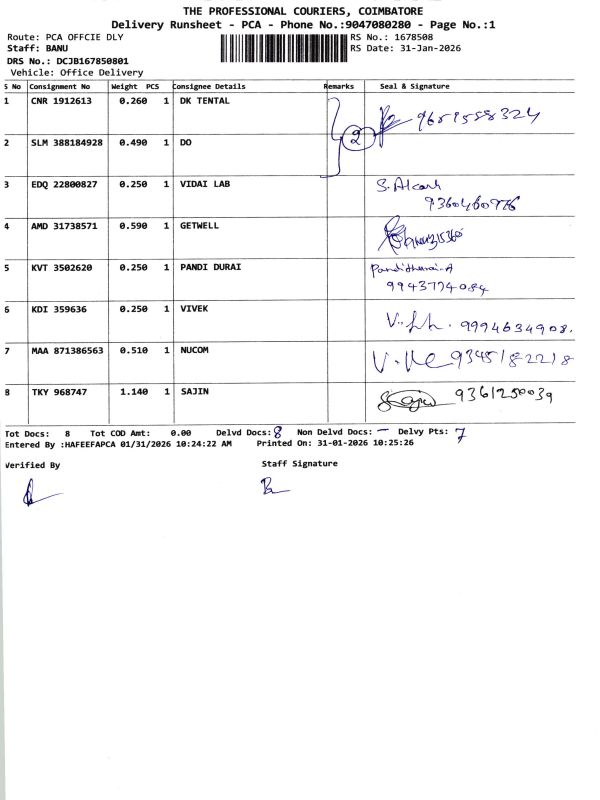 THE PROFESSIONAL COURIERS, COIMBATORE
Delivery Runsheet - PCA - Phone No.:9047080280 - Page No.:1
Route: PCA OFFCIE DLY
Staff: BANU
DRS No.: DCJB167850801
Vehicle: Office Delivery
RS No.: 1678508
RS Date: 31-Jan-2026
S No Consignment No Weight PCS Consignee Details Remarks Seal & Signature
1 CNR 1912613 0.260 1 DK TENTAL 9659558324
2 SLM 388184928 0.490 1 DO 2
3 EDQ 22800827 0.250 1 VIDAI LAB
4 AMD 31738571 0.590 1 GETWELL
5 KVT 3502620 0.250 1 PANDI DURAI
9943774084
6 KDI 359636 0.250 1 VIVEK 9994634908.
7 MAA 871386563 0.510 1 NUCOM 9345182218
8 TKY 968747 1.140 1 SAJIN 9361250039
Tot Docs: 8 Tot COD Amt: 0.00 Delvd Docs: 8 Non Delvd Docs: — Delvy Pts: 7
Entered By :HAFEEFAPCA 01/31/2026 10:24:22 AM Printed On: 31-01-2026 10:25:26
Verified By Staff Signature